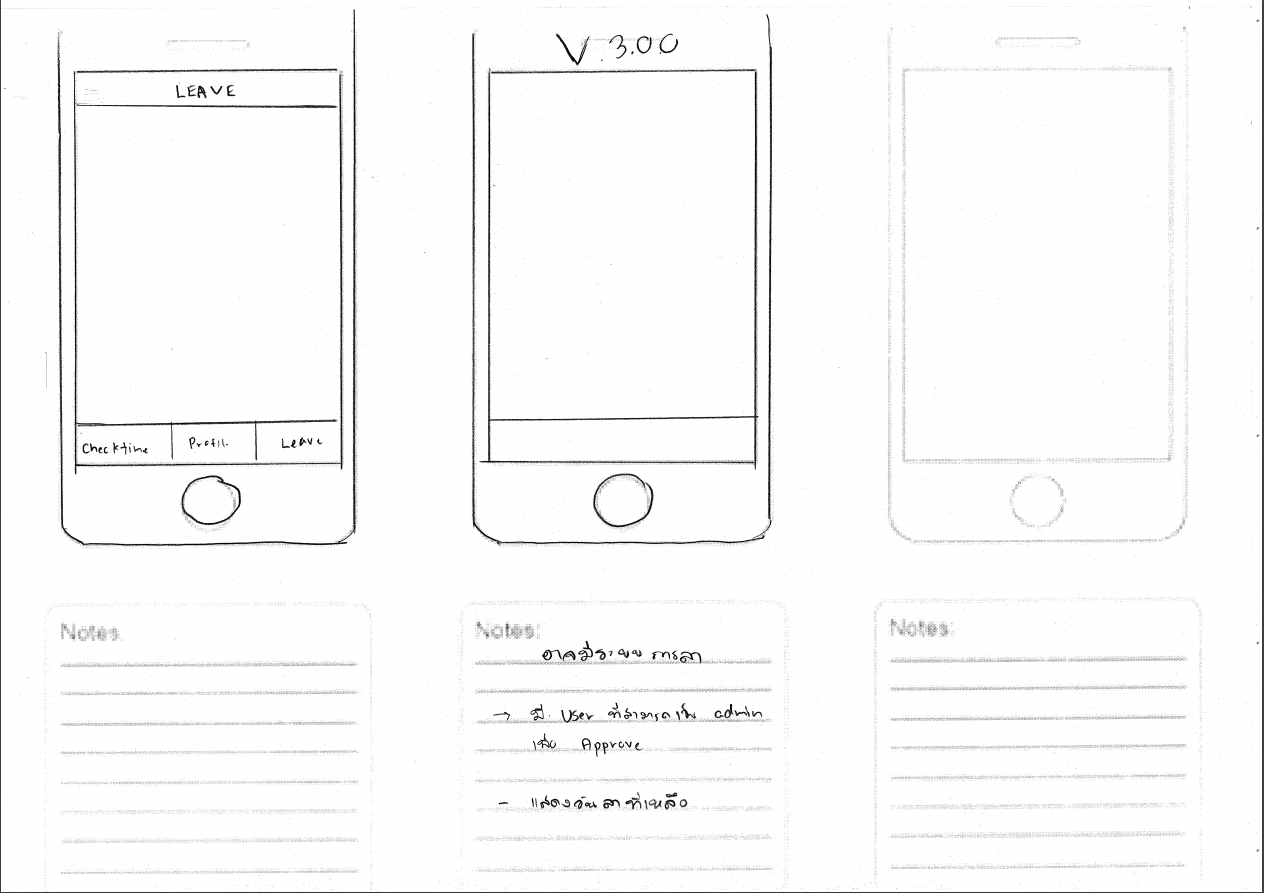 LEAVE
Checktime
Profil.
Leave
V.3.00
Notes:
Notes:
อาจมีระบบ การลา
→ มี User ที่สามารถเป็น admin
เพื่อ Approve
- แสดงวันลาที่เหลือ
Notes: